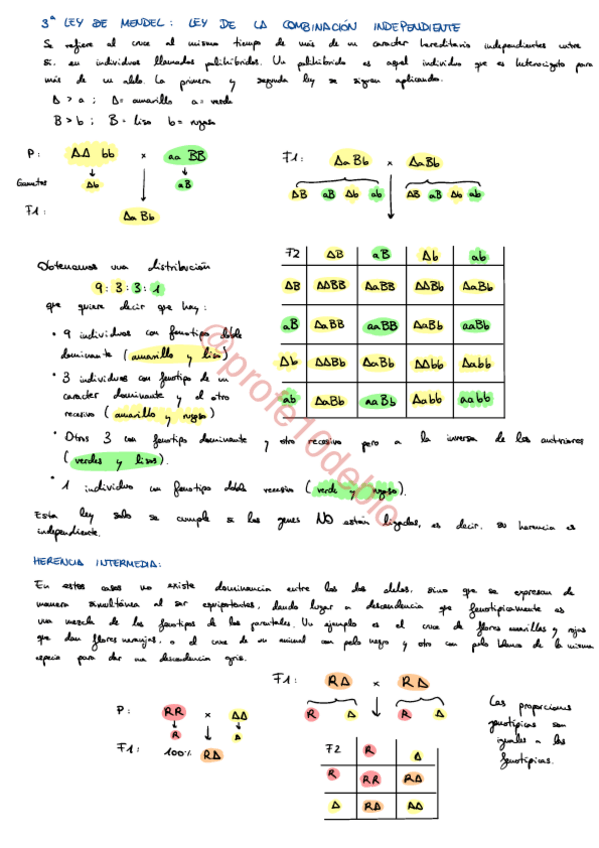 3ª LEY DE MENDEL: LEY DE LA COMBINACIÓN INDEPENDIENTE
Se refiere al cruce al mismo tiempo de más de un caracter hereditario independientes entre
sí, en individuos llamados polihíbridos. Un polihíbrido es aquel individuo que es heterocigoto para
más de un alelo. La primera y segunda ley se siguen aplicando.
A > a ; A = amarillo a = verde
B > b ; B = liso b = rugoso
P: AA bb x aa BB
Gametos Ab aB
F1: Aa Bb
F1: Aa Bb x Aa Bb
AB aB Ab ab AB aB Ab ab
Obtenemos una distribución
9:3:3:1
que quiere decir que hay:
• 9 individuos con fenotipo doble
dominante (amarillo y liso)
• 3 individuos con fenotipo de un
caracter dominante y el otro
recesivo (amarillo y rugoso)
F2 AB aB Ab ab
AB AABB AaBB AABb AaBb
aB AaBB aaBB AaBb aaBb
Ab AABb AaBb AAbb Aabb
ab AaBb aaBb Aabb aabb
• Otros 3 con fenotipo dominante y otro recesivo pero a la inversa de los anteriores
(verdes y lisos).
• 1 individuo con fenotipo doble recesivo (verde y rugoso).
Esta ley solo se cumple si los genes NO están ligados, es decir, su herencia es
independiente.
@profe10debio
HERENCIA INTERMEDIA:
En estos casos no existe dominancia entre los dos alelos, sino que se expresan de
manera simultánea al ser equipotentes, dando lugar a descendencia que fenotípicamente es
una mezcla de los fenotipos de los parentales. Un ejemplo es el cruce de flores amarillas y rojas
que dan flores naranjas, o el cruce de un animal con pelo negro y otro con pelo blanco de la misma
especie para dar una descendencia gris.
P: RR x AA
R A
F1: 100% RA
F1: RA x RA
R A R A
F2 R A
R RR RA
A RA AA
Las proporciones
genotípicas son
iguales a las
fenotípicas.